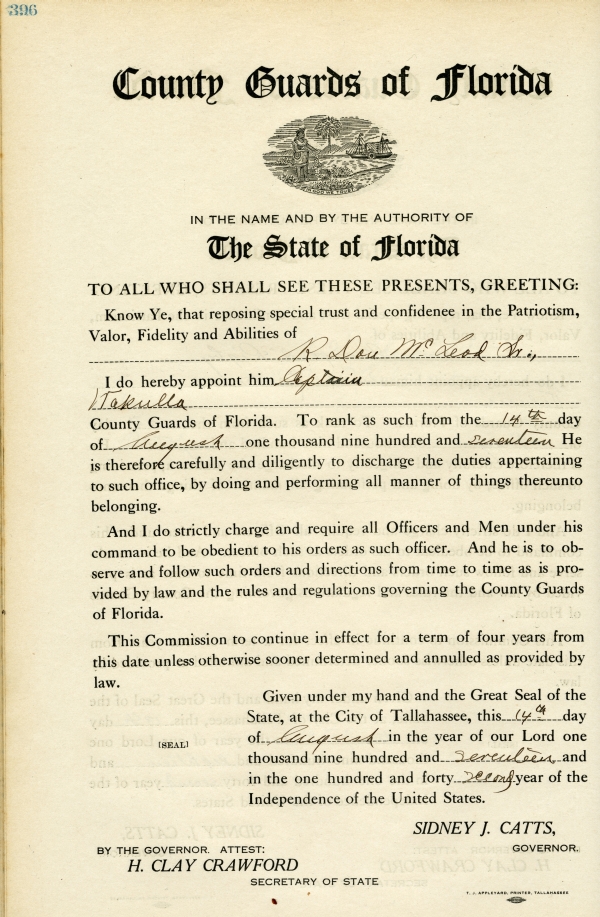 396
County Guards of Florida
IN THE NAME AND BY THE AUTHORITY OF
The State of Florida
TO ALL WHO SHALL SEE THESE PRESENTS, GREETING:
Know Ye, that reposing special trust and confidence in the Patriotism,
Valor, Fidelity and Abilities of
R Don McLeod Sr.,
I do hereby appoint him Captain
Wakulla
County Guards of Florida. To rank as such from the 14th day
of August one thousand nine hundred and seventeen He
is therefore carefully and diligently to discharge the duties appertaining
to such office, by doing and performing all manner of things thereunto
belonging.
And I do strictly charge and require all Officers and Men under his
command to be obedient to his orders as such officer. And he is to ob-
serve and follow such orders and directions from time to time as is pro-
vided by law and the rules and regulations governing the County Guards
of Florida.
This Commission to continue in effect for a term of four years from
this date unless otherwise sooner determined and annulled as provided by
law.
Given under my hand and the Great Seal of the
State, at the City of Tallahassee, this 14th day
[SEAL] of August in the year of our Lord one
thousand nine hundred and seventeen and
in the one hundred and forty second year of the
Independence of the United States.
SIDNEY J. CATTS,
GOVERNOR.
BY THE GOVERNOR. ATTEST:
H. CLAY CRAWFORD
SECRETARY OF STATE
T. J. APPLEYARD, PRINTER, TALLAHASSEE